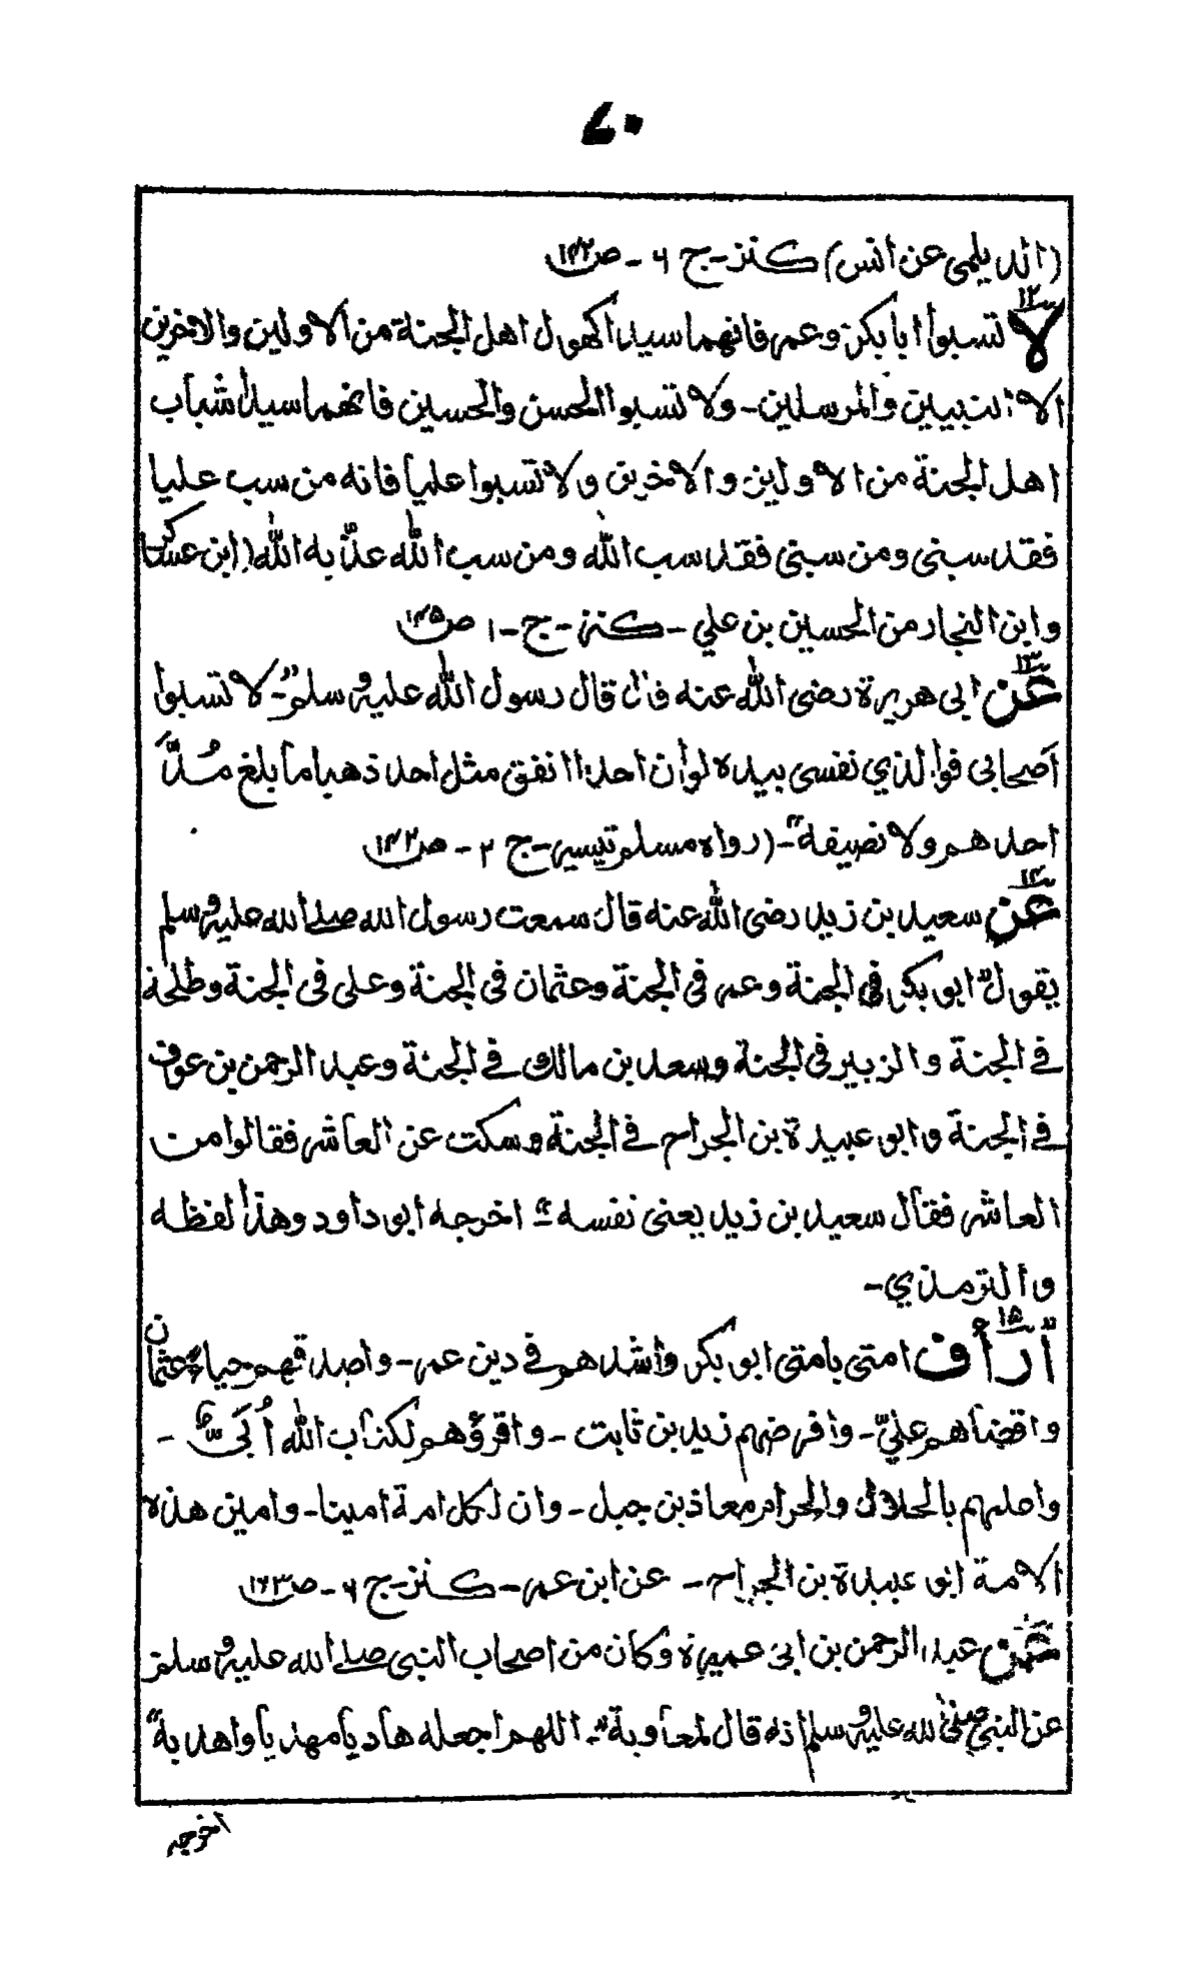 ٤٠
(الديلمى عن انس) كنز - ج ٦ - ص١٤٢
١٢
لا تسبوا ابا بكر وعمر فانهما سيدا كهول اهل الجنة من الاولين والاخرين
الا النبيين والمرسلين - ولا تسبوا الحسن والحسين فانهما سيدا شباب
اهل الجنة من الاولين والاخرين ولا تسبوا عليا فانه من سب عليا
فقد سبنى ومن سبنى فقد سب الله ومن سب الله عذبه الله (ابن عساكر
وابن النجار من الحسين بن علي - كنز - ج - ١ ص١٤٥
١٣
عن ابى هريرة رضى الله عنه قال قال رسول الله عليه وسلم "- لا تسبوا
أصحابى فوالذي نفسى بيده لو أن احدا انفق مثل احد ذهبا ما بلغ مُدّ
احدهم ولا نصيفه" - (رواه مسلم تيسير - ج ٢ - ص١٤٢
١٤
عن سعيد بن زيد رضى الله عنه قال سمعت رسول الله صلى الله عليه وسلم
يقول" ابو بكر فى الجنة وعمر فى الجنة وعثمان فى الجنة وعلى فى الجنة وطلحة
فى الجنة والزبير فى الجنة وسعد بن مالك فى الجنة وعبد الرحمن بن عوف
فى الجنة وابو عبيدة بن الجراح فى الجنة وسكت عن العاشر فقالوا من
العاشر فقال سعيد بن زيد يعنى نفسه"- اخرجه ابو داود وهذا لفظه
والترمذي -
١٥
أرأف امتى بامتى ابو بكر واشدهم فى دين عمر - واصدقهم حياء عثمان
واقضاهم عليّ - وافرضهم زيد بن ثابت - واقرؤهم لكتاب الله أُبَىّ -
واعلمهم بالحلال والحرام معاذ بن جبل - وان لكل امة امينا - وامين هذه
الامة ابو عبيدة بن الجراح - عن ابن عمر - كنز - ج ٦ - ص١٦٣
عن عبد الرحمن بن ابى عميرة وكان من اصحاب النبى صلى الله عليه وسلم
عن النبي صلى الله عليه وسلم انه قال لمعاوية"- اللهم اجعله هاديا مهديا واهد به"
اخرجه